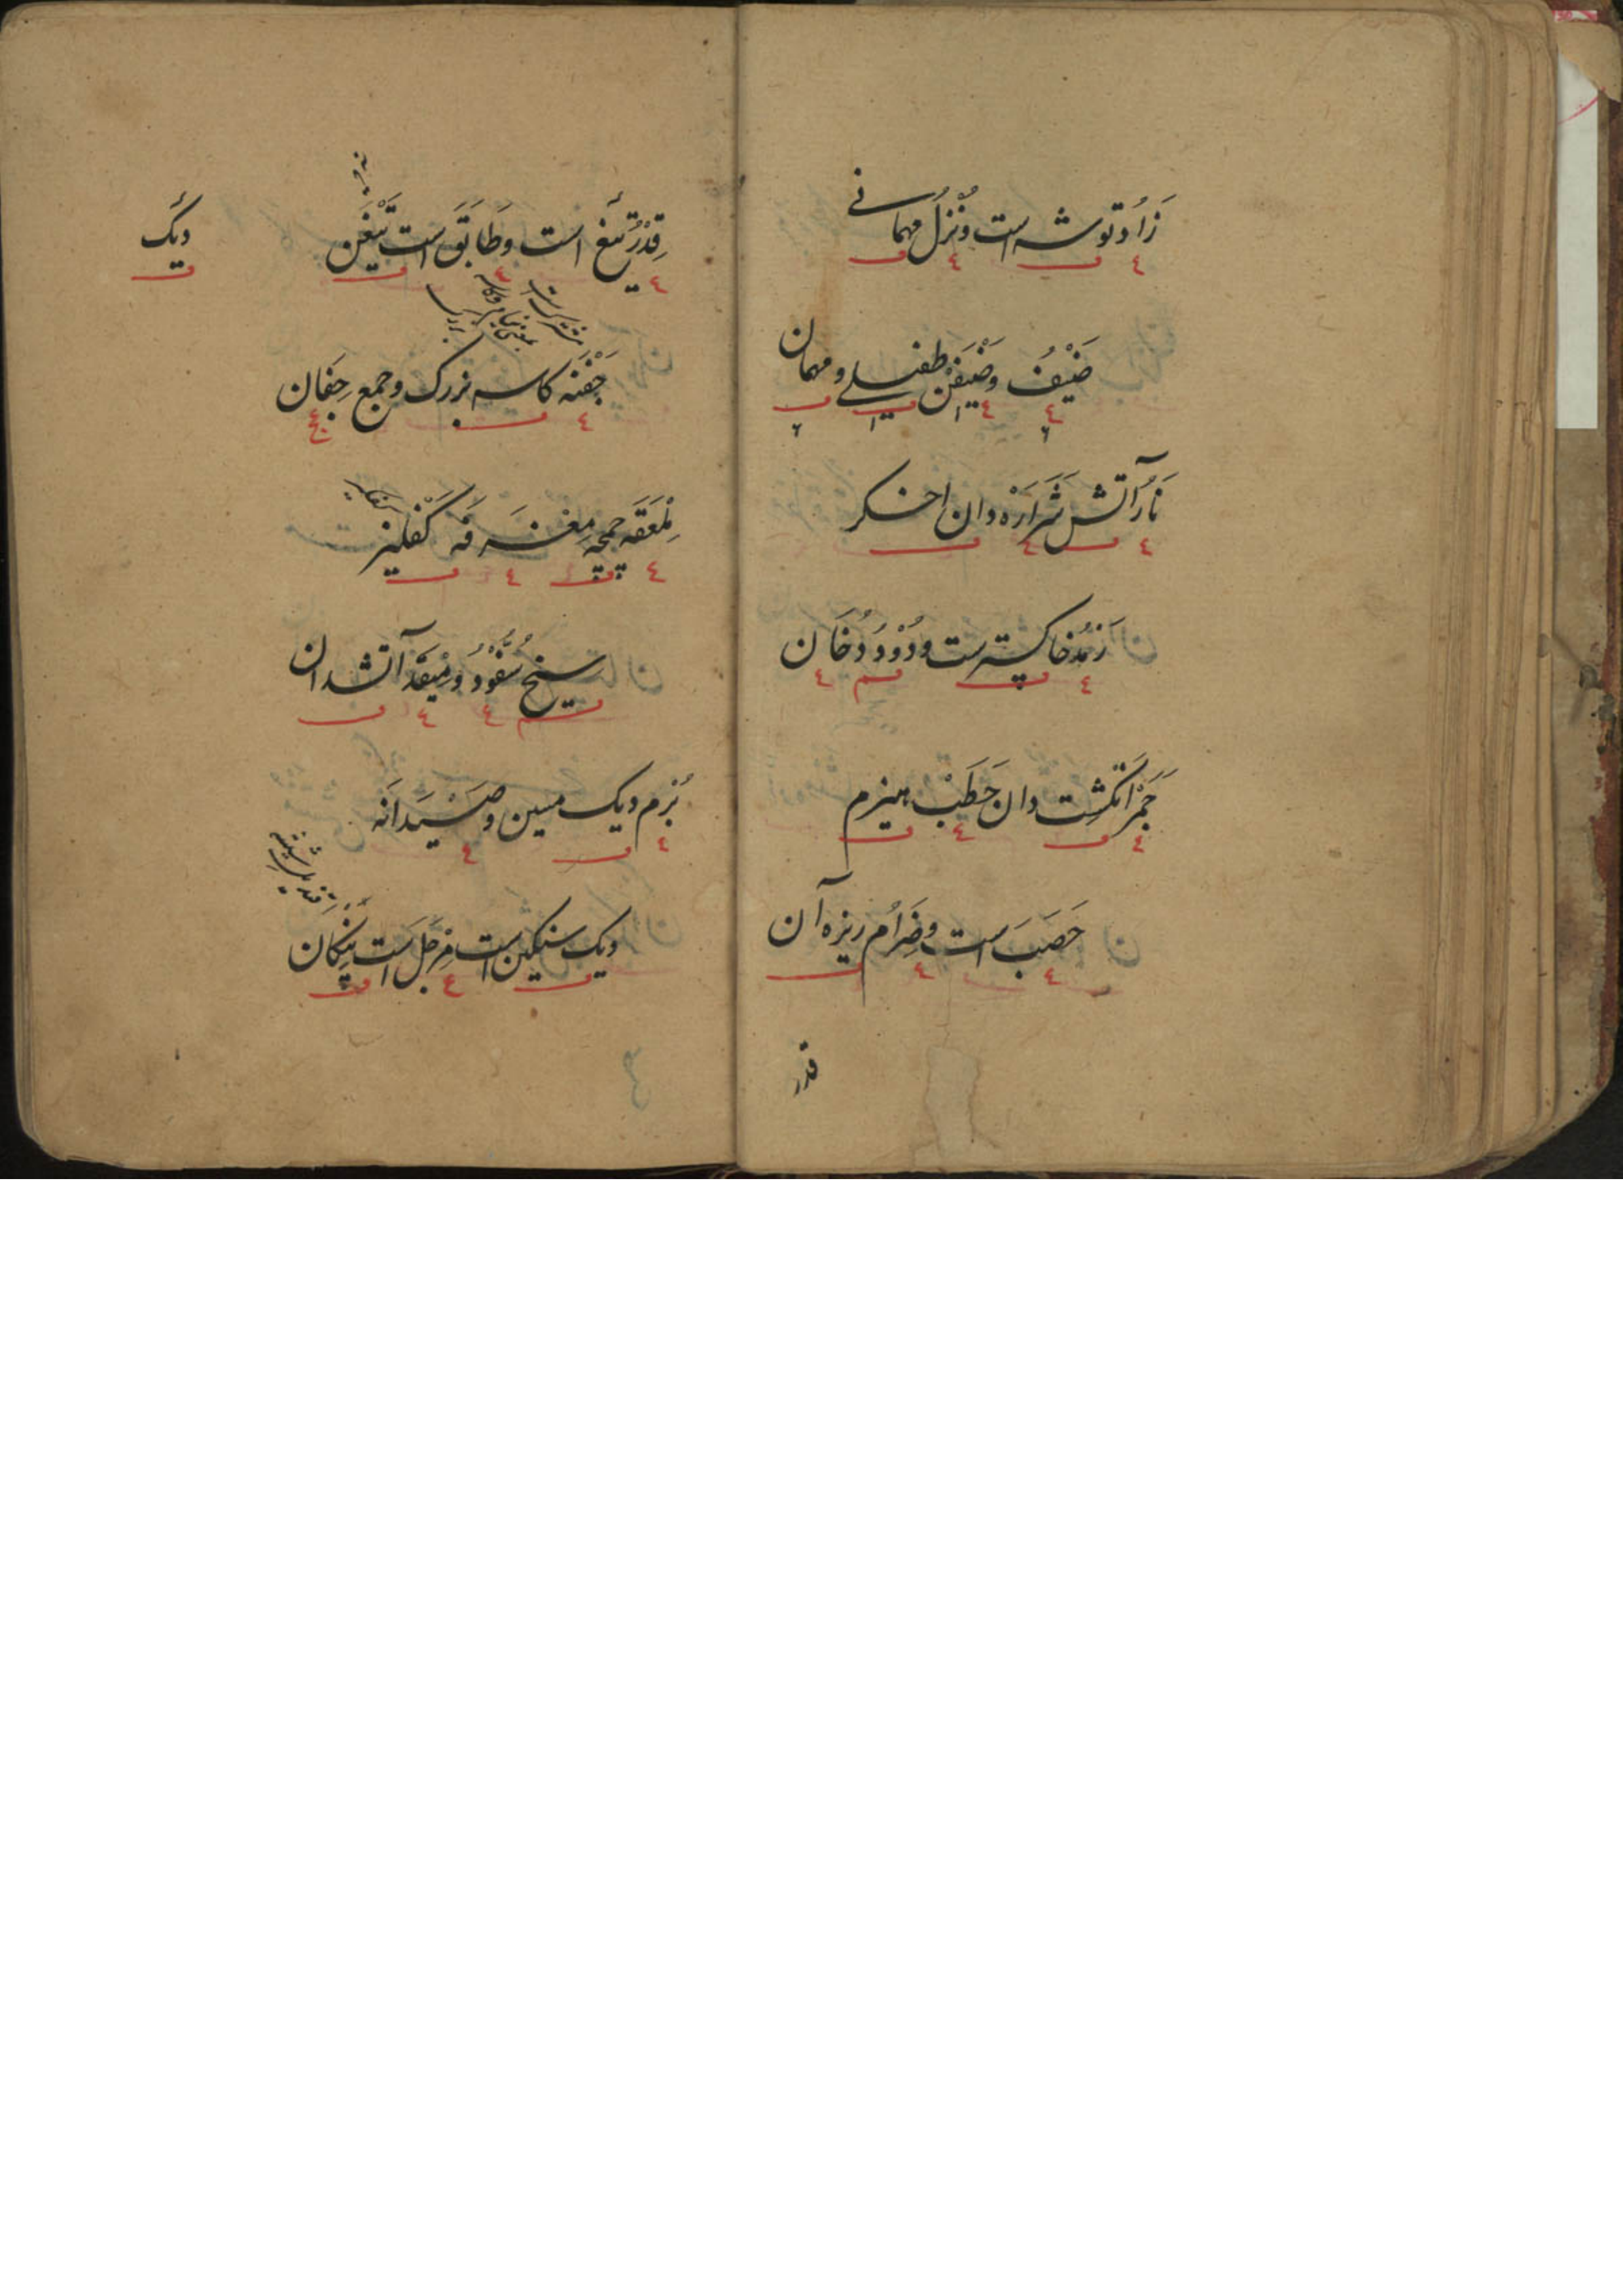 زَادُ توشه است و نُزْلُ مهمانی
ضَیْفُ و ضَیْفَنْ طفیلی و مهمان
نَارُ آتش شَرَارَه دان اخگر
رَمْدُ خاکسترست و دُوْدْ دُخَان
جَمْرُ انگِشْت دان حَطَبْ هیزم
حَصَبَ است و ضِرَام ریزه آن
قدر
قِدْرُ تَیغ است و طَابَق است تَیْغَن
دیگ
جَفْنَه کاسه بزرگ و جمع جِفَان
مِلْعَقَه چمچه مِغْرَفَه کَفْلیز
سیخ سُفُّوْدُ و مِیْقَدَ آتشدان
بُرْم دیگ مسین و صَیْدَانَه
دیگ سنگین است مِرْجَل است پنگان